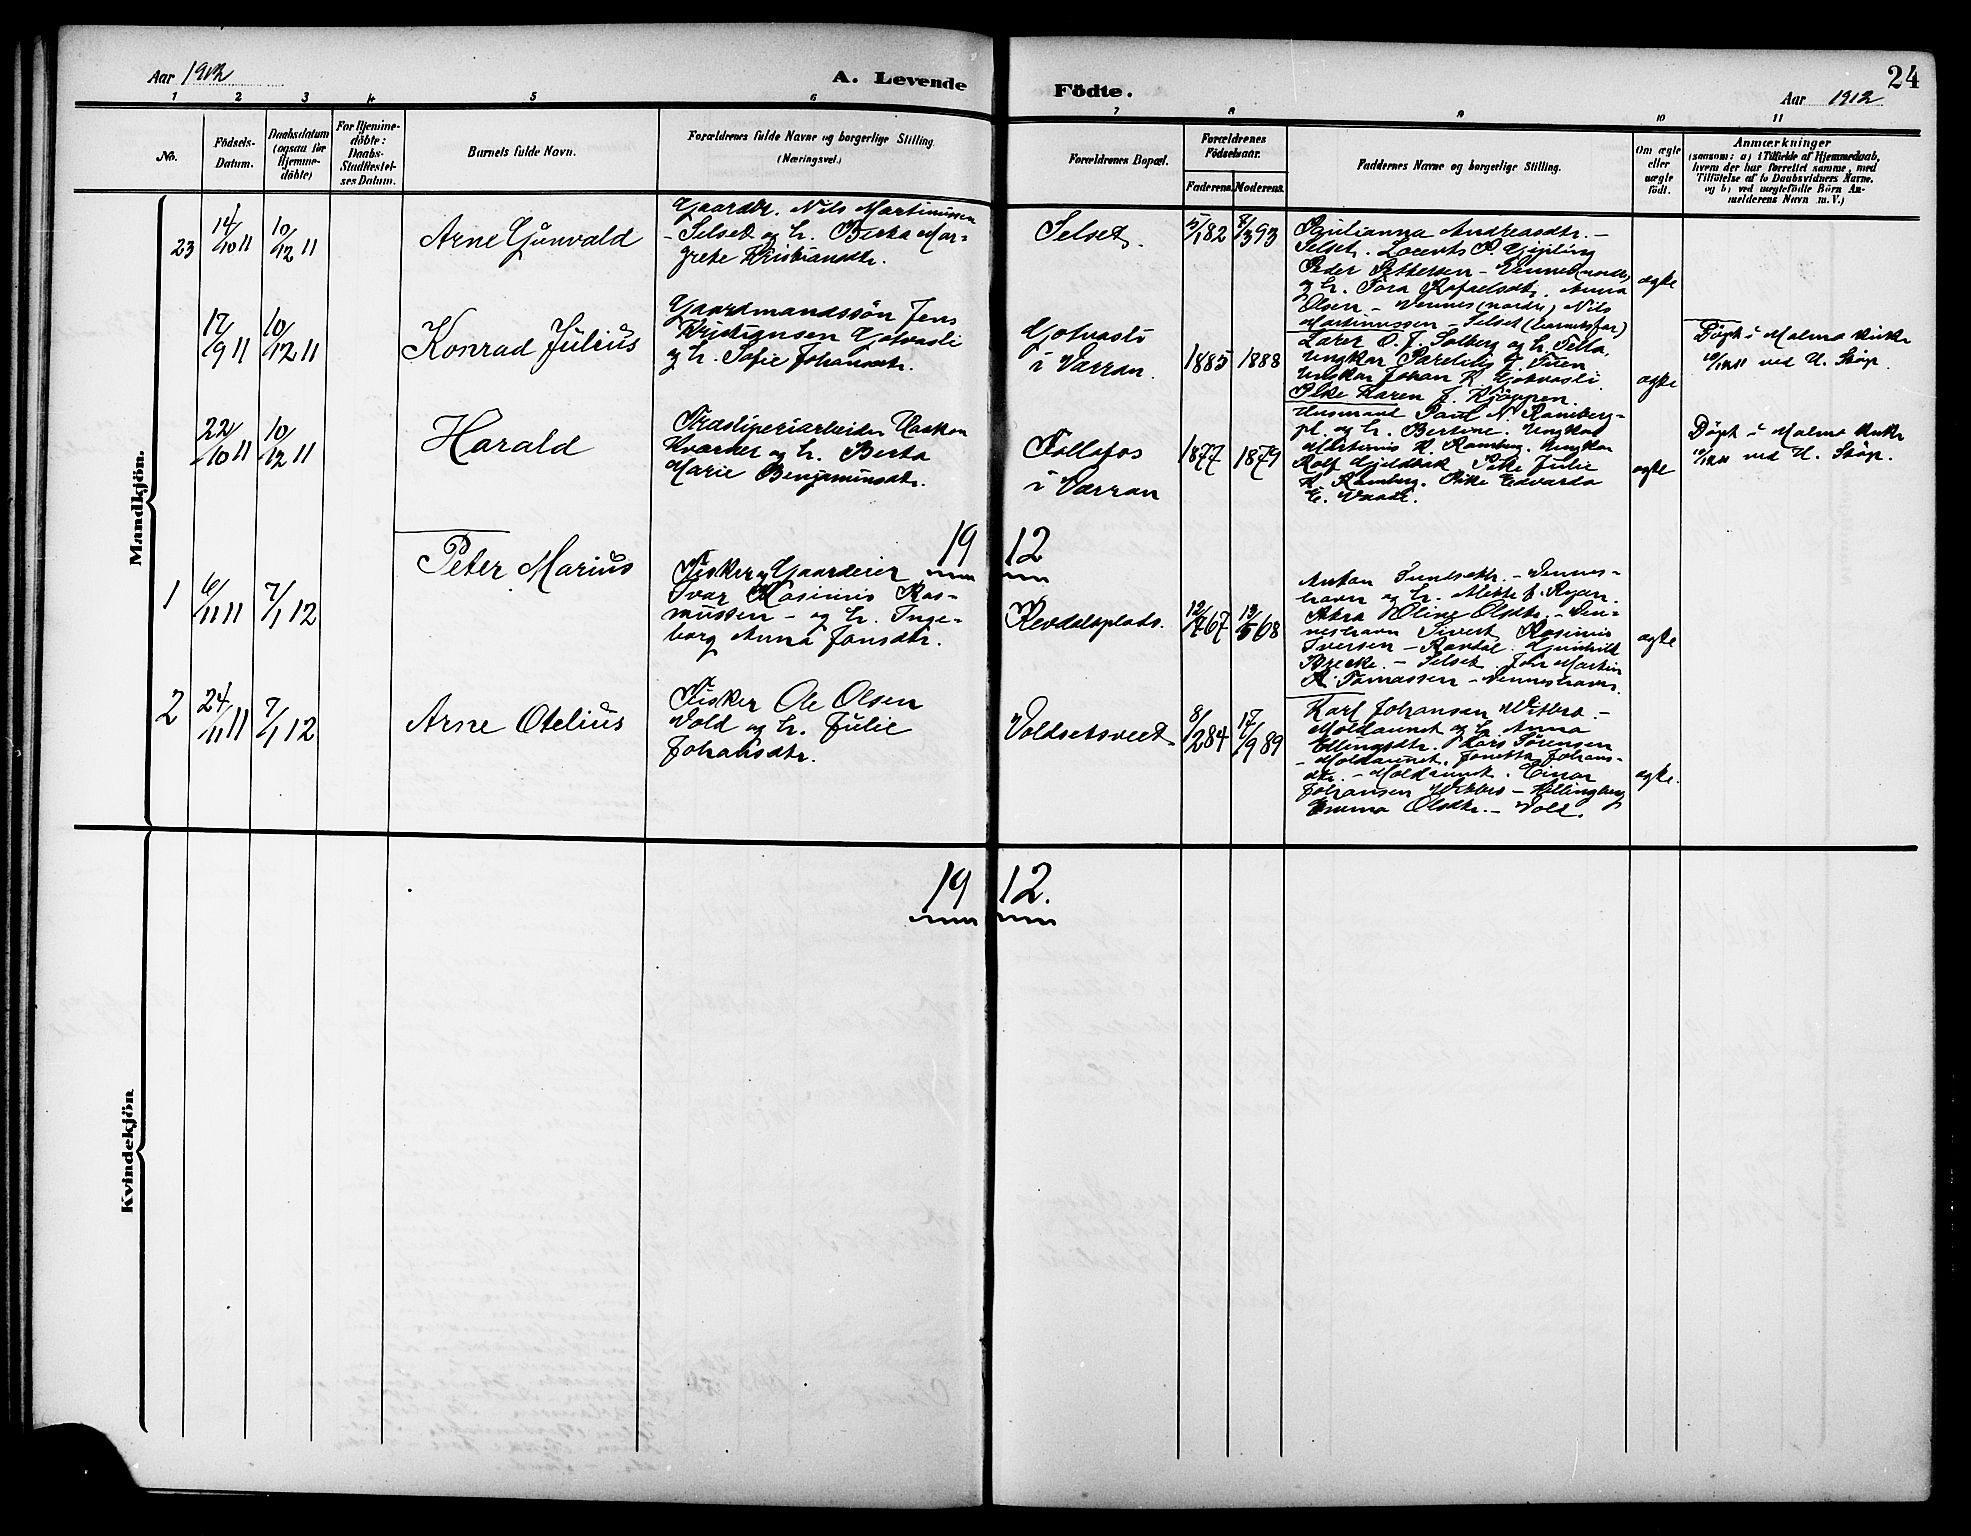 Aar 1912
A. Levende
Födte.
24
Aar 1912
1 2 3 4 5 6 7 8 9 10 11
No.
Födsels-
Datum.
Daabsdatum
(ogsaa för
Hjemme-
döbte)
For Hjemme-
döbte:
Daabs-
Stadfæstel-
ses Datum.
Barnets fulde Navn.
Forældrenes fulde Navne og borgerlige Stilling.
(Næringsvei.)
Forældrenes Bopæl.
Forældrenes
Födselsaar.
Faderens. Moderens.
Faddernes Navne og borgerlige Stilling.
Om ægte
eller
uægte
födt.
Anmærkninger
(saasom: a) i Tilfælde af Hjemmedaab,
hvem der har forrettet samme, med
Tilföielse af to Daabsvidners Navne.
og b) ved uægtefödte Börn An-
melderens Navn m. V.)
Mandkjön.
23
14/10 11
10/12 11
Arne Gunvald
Gaardbr. Nils Martinussen
- Selset og h. Berta Mar-
grete Kristiansdtr.
Selset.
82 93
Julianna Andreasdtr. -
Selset. Laerents P. Gipling
Peder Pettersen - Vennes (nordre)
og h. Tora Rafaelsdtr. Anna
Olsen - Vennes (nordre) Nils
Martinussen - Selset (barnets far)
ægte
17/9 11
10/12 11
Konrad Julius
Gaardmandssön Jens
Kristiansen Gjotvasli
og h. Sofie Johansdtr.
Gjotvasli
i Værran.
1885 1888
Lærer O. J. Solberg og h. Tella,
Ungkar J. Tuen
Ungkar Johan K. Gjotvasli.
Pike Karen J. Kjöppen.
ægte
Döpt i Malmo kirke
10/12 11 ved U. Støp.
22/10 11
10/12 11
Harald
Træsliperiarbeider Haakon
Kværner og h. Berta
Marie Benjaminsdtr.
Follafos
i Værran
1877 1879
Husmand Paul N. Ramberg-
pl. og h. Bertine. Ungkar
Martinus K. Ramberg. Ungkar
Rolf Hjeldbak. Pike Julie
K. Ramberg. Pike Edvarda
E. Vaade.
ægte
Döpt i Malmo kirke
10/12 11 ved U. Støp.
19 12
1
6/11 11
7/1 12
Peter Marius
Fisker og Gaardeier
Ivar Kasinus Ras-
mussen - og h. Inge-
borg Anna Jonsdtr.
Revdalsplads.
12/7 67
13/5 68
Anton - Vennes-
havn og h. Mette f. Ryan.
Oline Olsdtr. - Ven-
neshavn Sivert Rasinus
Iversen - Ravdal. Gunhild
Brekke. - Selset. Joh Martin
R. Tomassen - Venneshavn.
ægte
2
24/11 11
7/1 12
Arne Otelius
Fisker Ole Olsen
Vold og h. Julie
Johansdtr.
Voldsetsveet
8/2 84
17/9 89
Karl Johansen Wibbro. -
Moldaunet og h. Anna
Ellingsdtr. Lars Sørensen
- Moldaunet. Jonetta Johans-
dtr. - Moldaunet. Einar
Johansen Wibbro - Killingberg
Emma Olsdtr. - Vold.
ægte.
Kvindekjön
19 12.